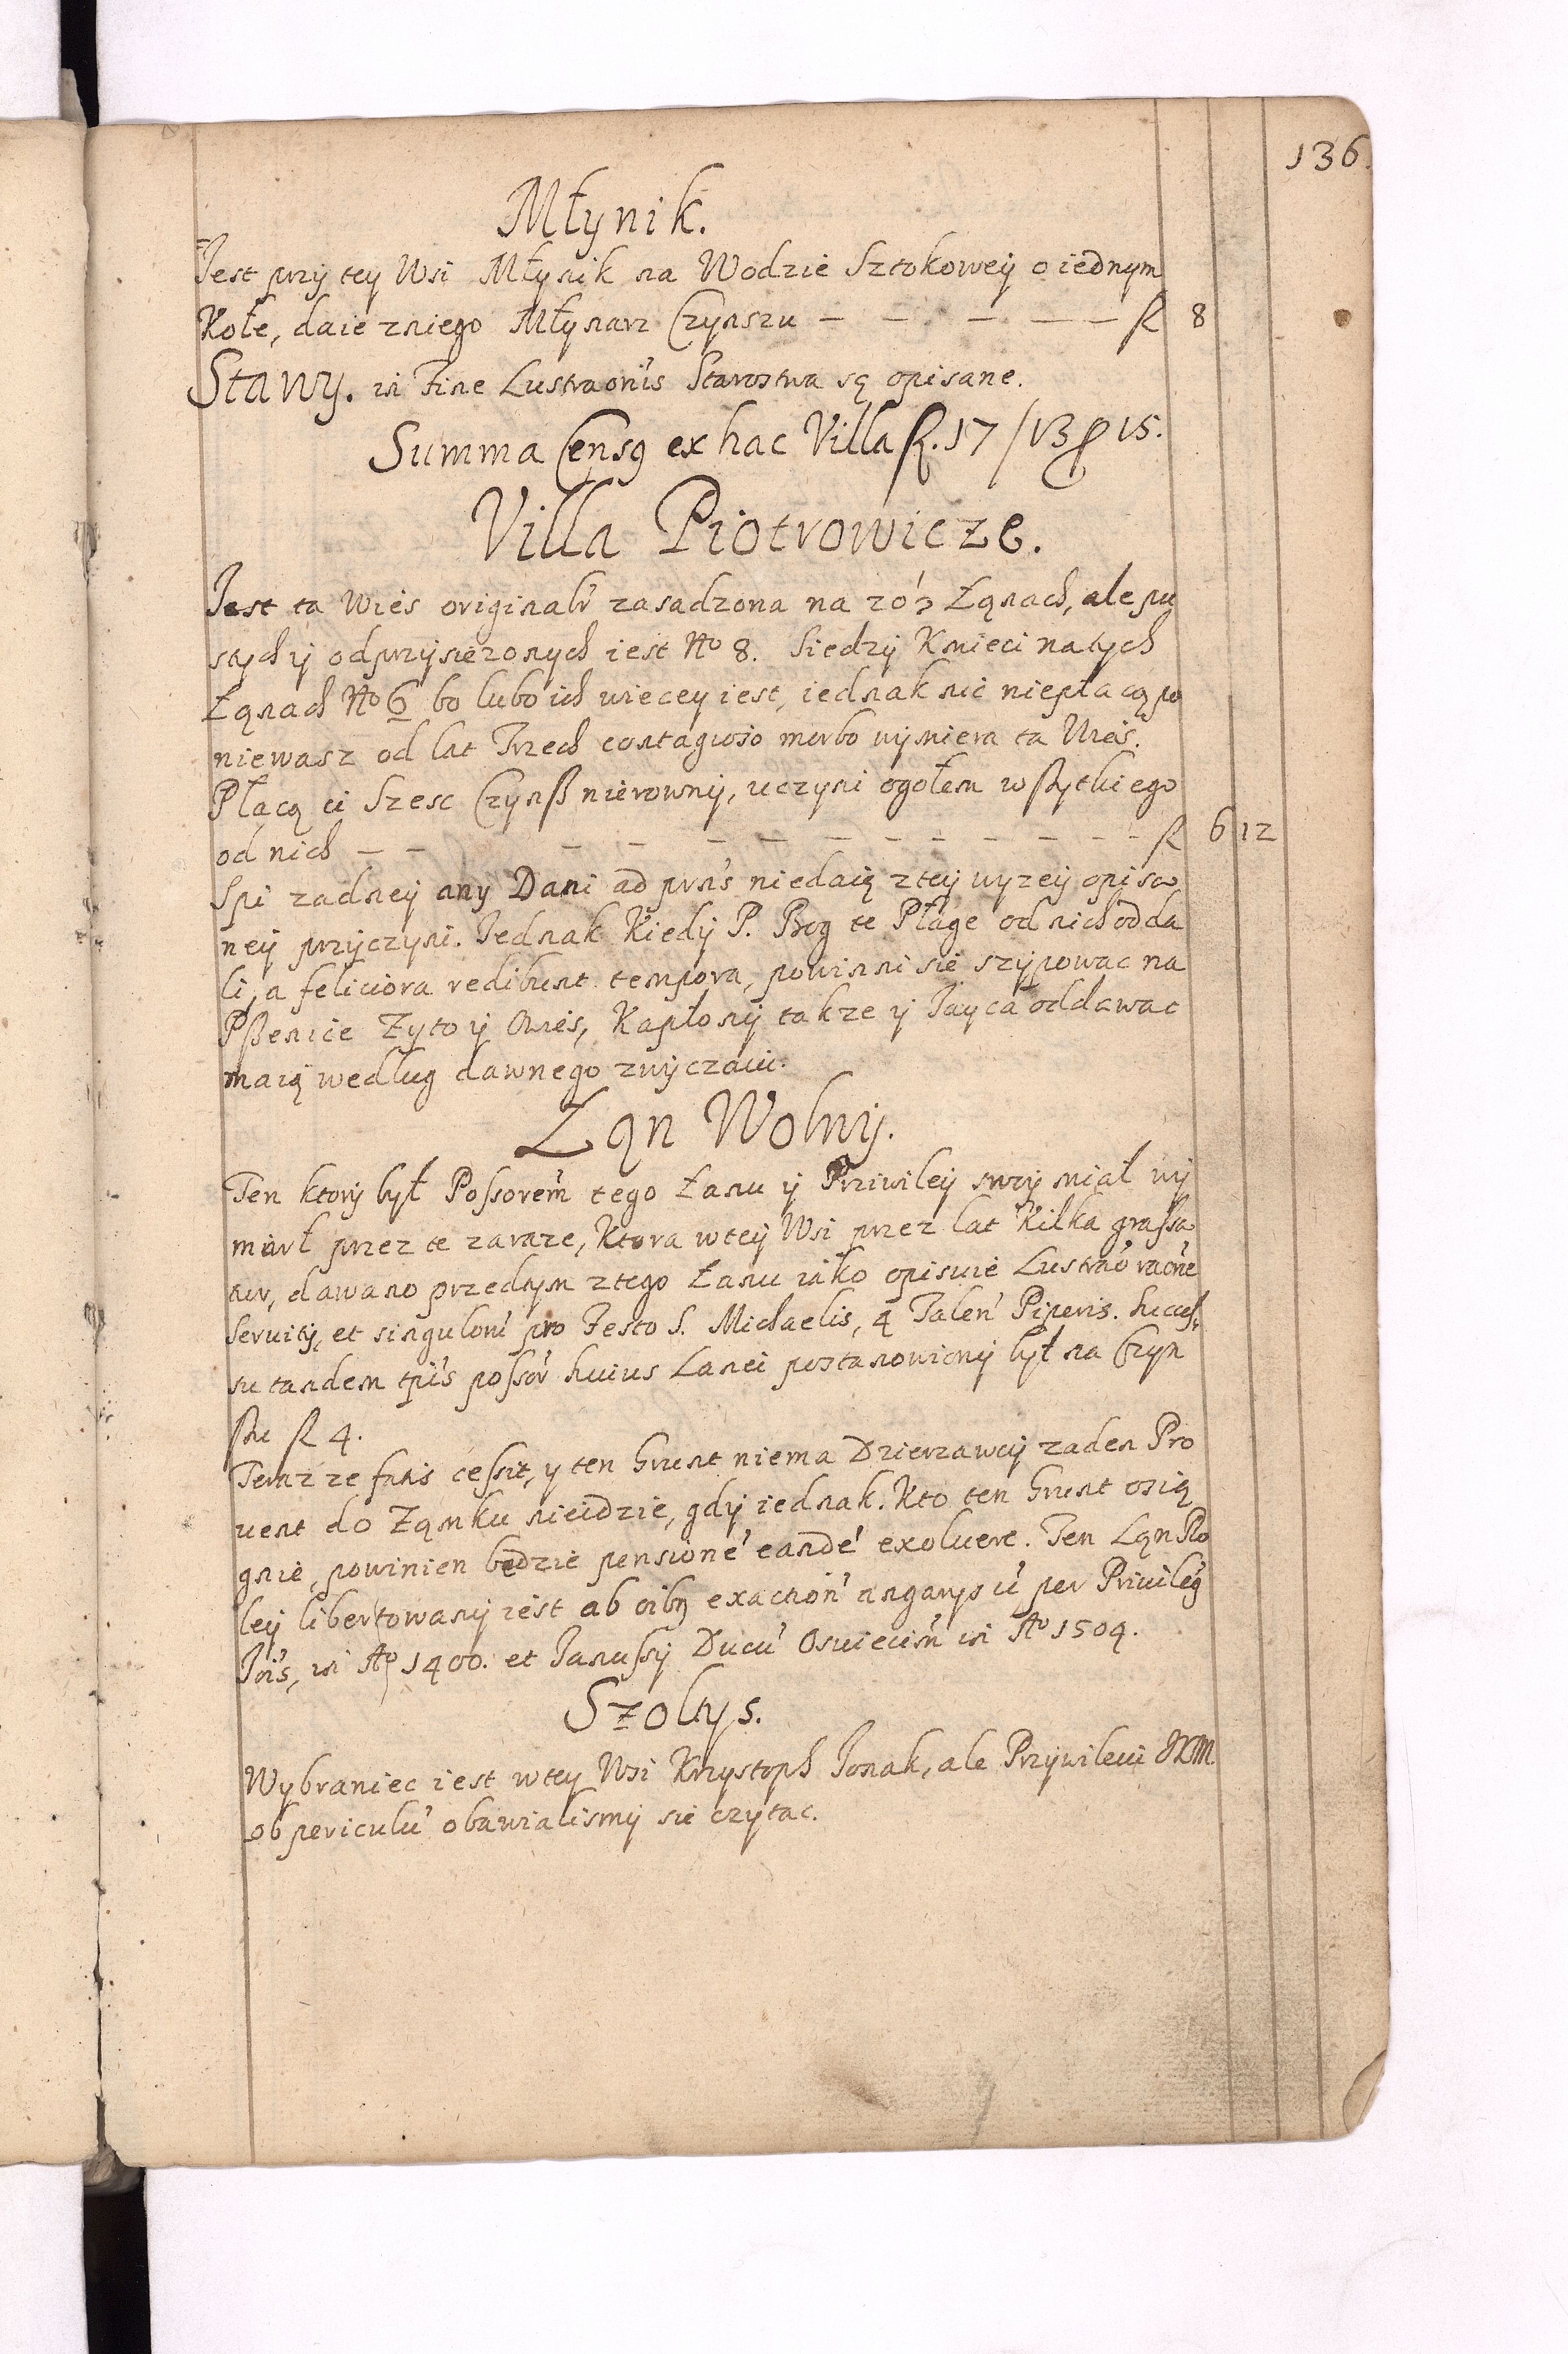 136.
Młynik.
Jest przy tey Wsi Młynik na Wodzie Sztokowey o iednym
Kole, daie zniego Młynarz Czynszu — — — — — fl 8
Stawy. in Fine Lustraonis Starostwa są opisane.
Summa Censq ex hac Villa fl. 17 / 13 ₰ 15.
Villa Piotrowicze.
Jest ta Wieś originalr zasadzona na Łąnach, ale pu
stych y odprzysiezonych iest No 8. Siedzy Kmieci na tych
Łąnach No 6 bo lubo ich wiecey iest, iednak nic niepłacą po
niewasz od lat Trzech contagioso morbo wymiera ta Wieś.
Płacą ci Szesc Czynß nierowny, uczyni ogołem wszytkiego
od nich — — — — — — — — — — — fl 6 12
Spi zadney any Dani ad prns niedaią ztey wyzey opisa
ney przyczyni. Jednak Kiedy P. Bog te Plage od nich odda
li, a feliciora redibunt tempora, powinni sie szypowac na
Pßenice Zyto y Owies, Kapłony takze y Jayca oddawac
maią według dawnego zwyczaiu.
Łąn Wolny.
Ten ktory był Possorem tego Łanu y Prziwiley swoy miał wy
marł przez te zaraze, Ktora w tey Wsi przez lat Kilka grassa
tur, dawano przedtym ztego Łanu iako opisuie Lustrao raone
Servitij, et singulom pro Festo S. Michaelis, 4 Talen Piperis. Succes
su tandem tpis possor huius Lanei postanowiony był na Czyn
szu fl 4.
Teraz ze fatis cessit, y ten Grunt niema Dzierzawcy zaden Pro
vent do Zamku nieidzie, gdy iednak. Kto ten Grunt osią
gnie, powinien będzie pensione eande exoluere. Ten Łąn Ro
ley libertowany iest ab oibq exaction angarys u per Privileg
Jois, in Ao 1400. et Janussy Ducu Oswiecim in Ao 1504.
Szołtys.
Wybraniec iest w tey Wsi Krzystoph Jonak, ale Przywileiu JKM
ob periculu obawialismy sie czytac.